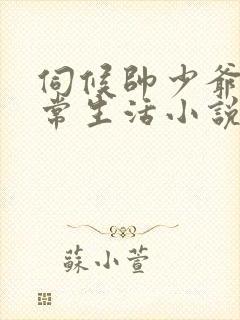 伺候帥少爺
常生活小說
蘇小萱